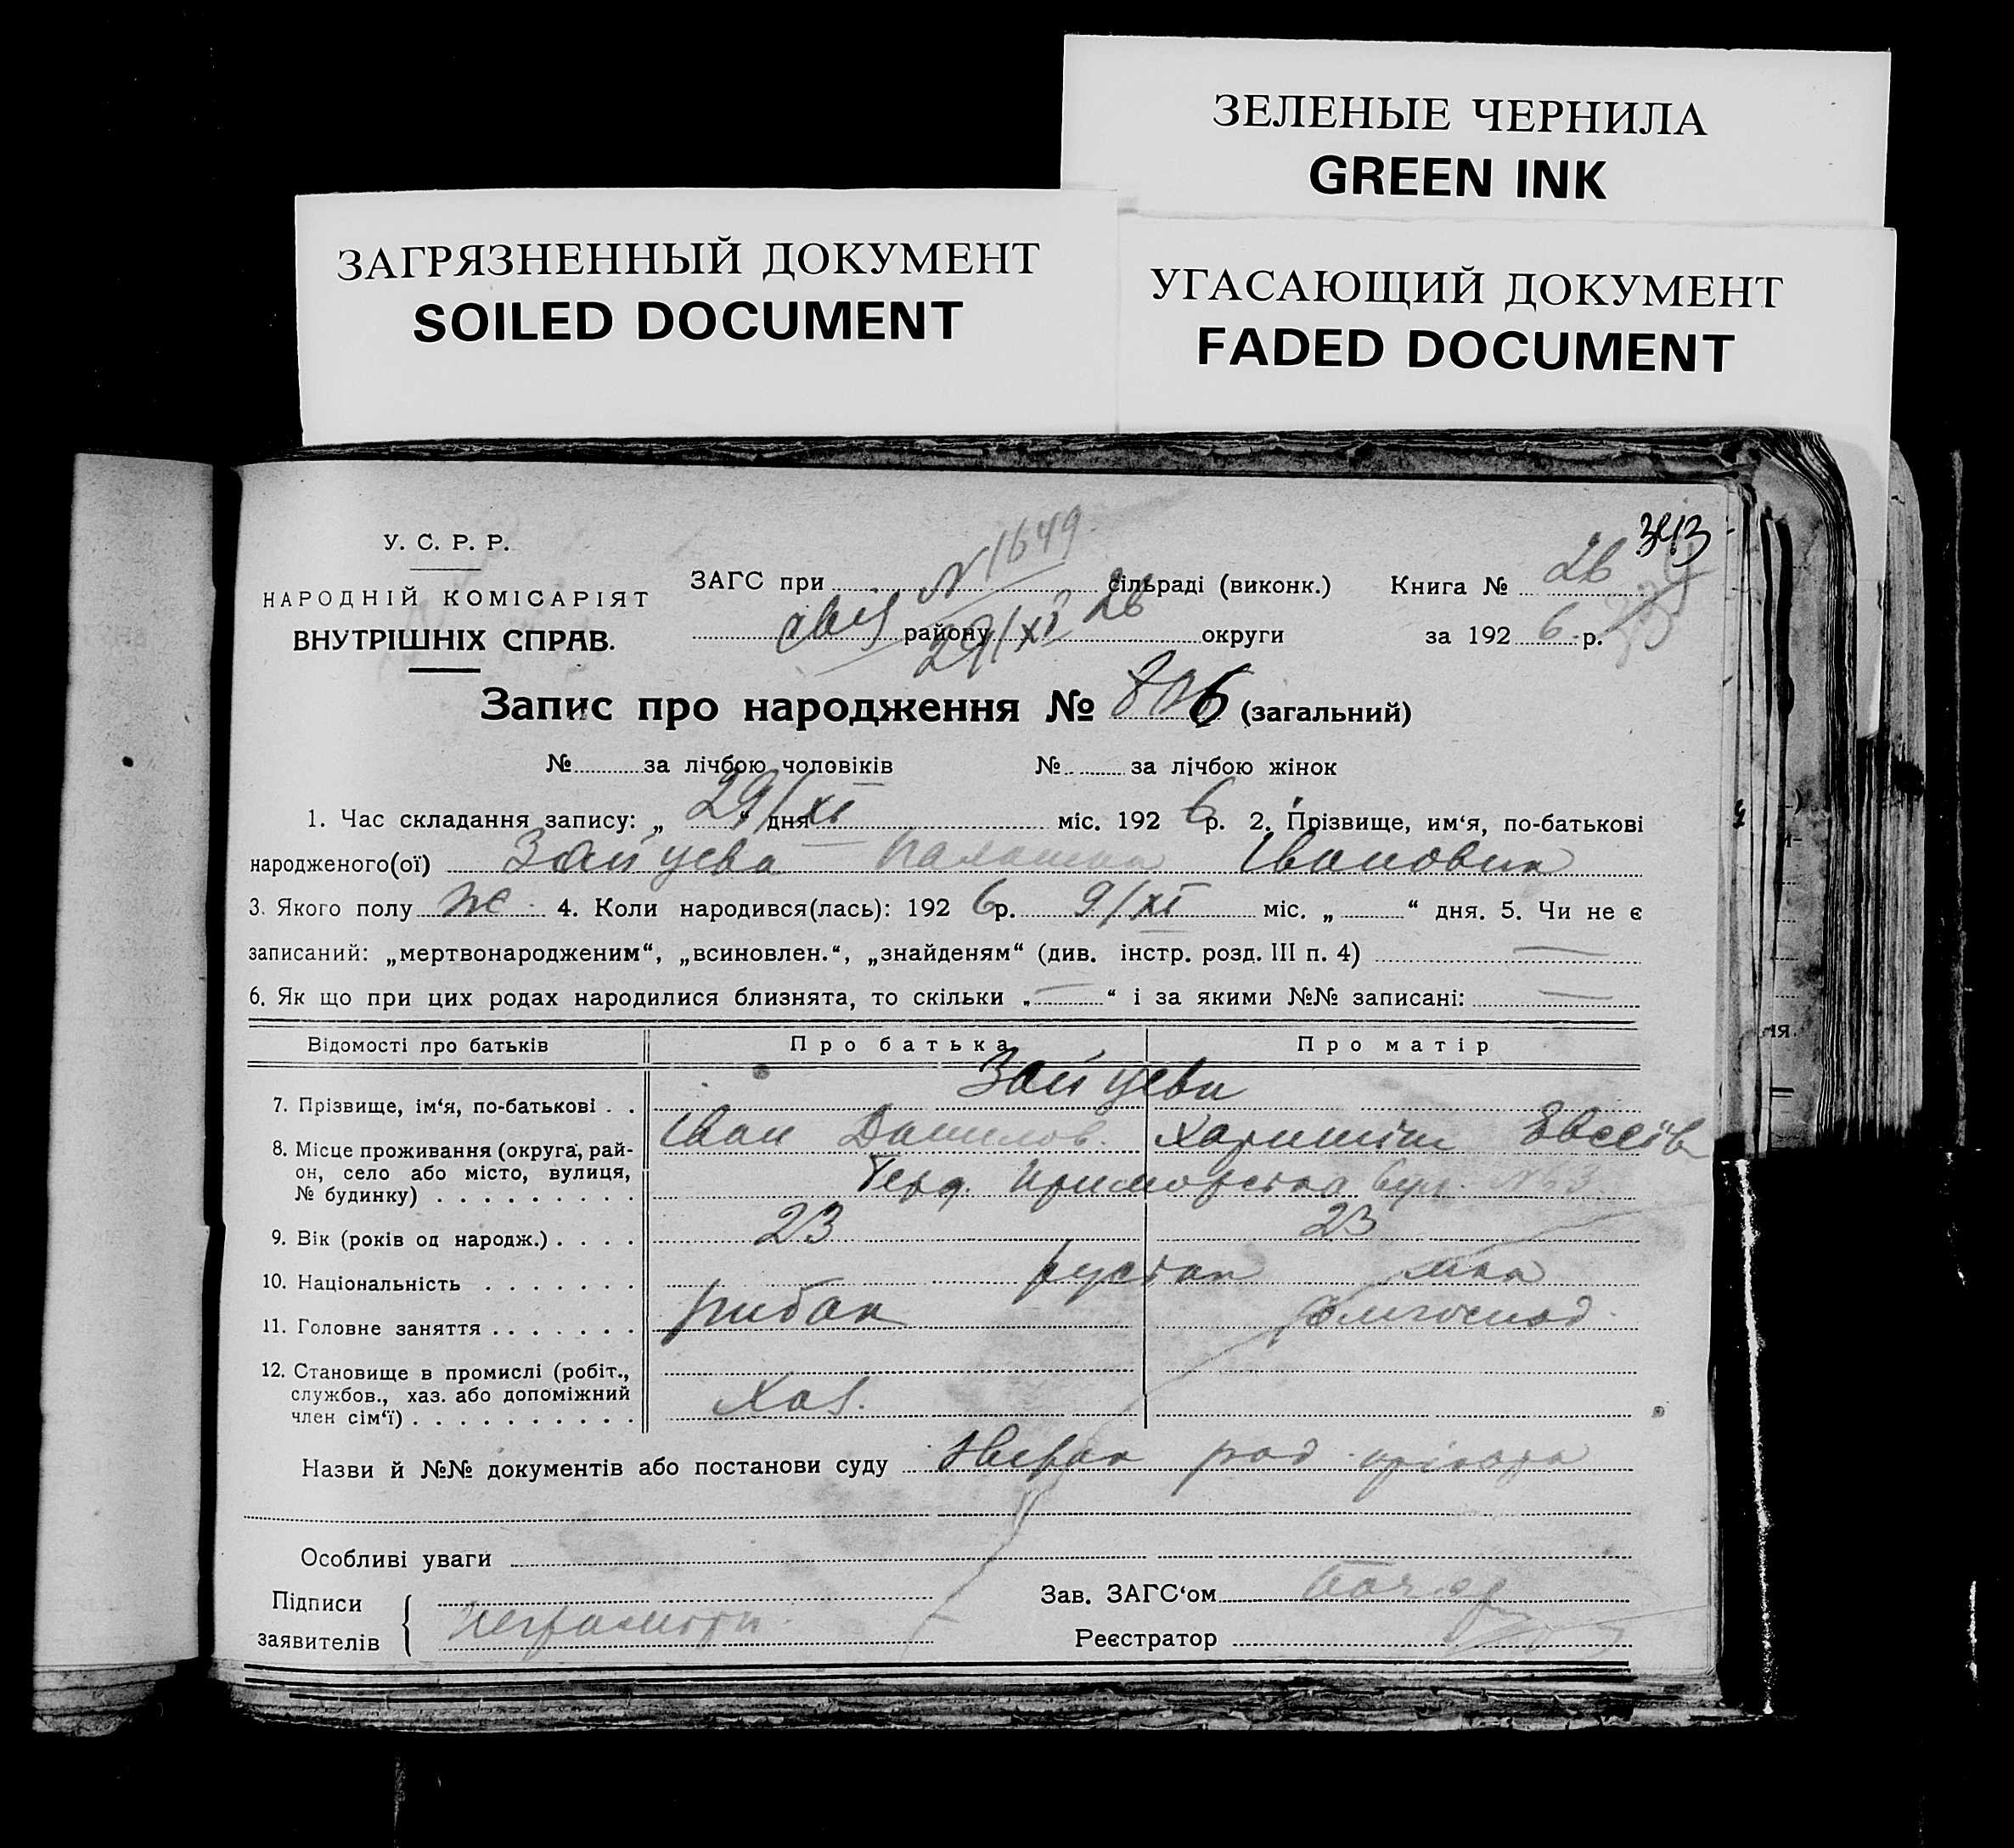 ЗЕЛЕНЫЕ ЧЕРНИЛА
GREEN INK
ЗАГРЯЗНЕННЫЙ ДОКУМЕНТ
SOILED DOCUMENT
УГАСАЮЩИЙ ДОКУМЕНТ
FADED DOCUMENT
343
У. С. Р. Р.
НАРОДНІЙ КОМІСАРІЯТ
ВНУТРІШНІХ СПРАВ.
N 1649
ЗАГС при сільраді (виконк.) Книга № 26
району 29/XI 26 округи за 192 6 р.
Запис про народження № 806 (загальний)
№ за лічбою чоловіків № за лічбою жінок
1. Час складання запису: „ 29/XI “ дня міс. 192 6 р. 2. Прізвище, им‘я, по-батькові
народженого(ої) Зайцева Палашка Івановна
3. Якого полу ж 4. Коли народився(лась): 192 6 р. 9/XI міс. „ “ дня. 5. Чи не є
записаний: „мертвонародженим“, „всиновлен.“, „знайденям“ (див. інстр. розд. III п. 4) —
6. Як що при цих родах народилися близнята, то скільки „—“ і за якими №№ записані: —
Відомості про батьків Про батька Про матір
7. Прізвище, ім‘я, по-батькові . . Зайцеви
Іван Данилов. Харитіна Євсеїв
8. Місце проживання (округа, рай-
он, село або місто, вулиця,
№ будинку) . . . . . . . . . Берд. Приморська вул. N 63
9. Вік (років од народж.) . . . . 23 23
10. Національність . . . . . . .
11. Головне заняття . . . . . . . рибак
12. Становище в промислі (робіт.,
службов., хаз. або допоміжний
член сім‘ї) . . . . . . . . . . Хаз.
Назви й №№ документів або постанови суду
Особливі уваги
Підписи Зав. ЗАГС‘ом
заявителів неграмотн. Реєстратор